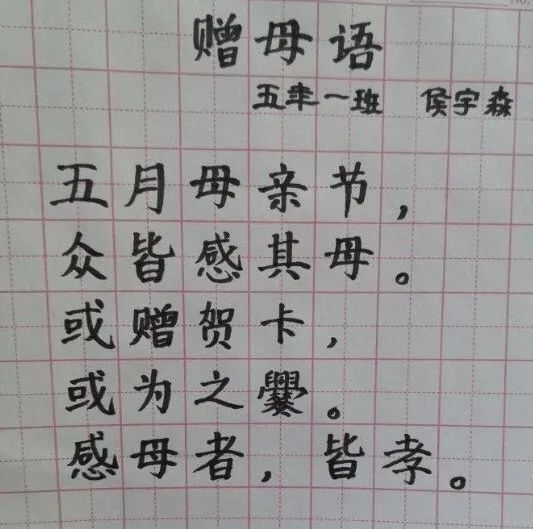 赠母语
五年一班 侯宇森
五月母亲节，
众皆感其母。
或赠贺卡，
或为之爨。
感母者，皆孝。